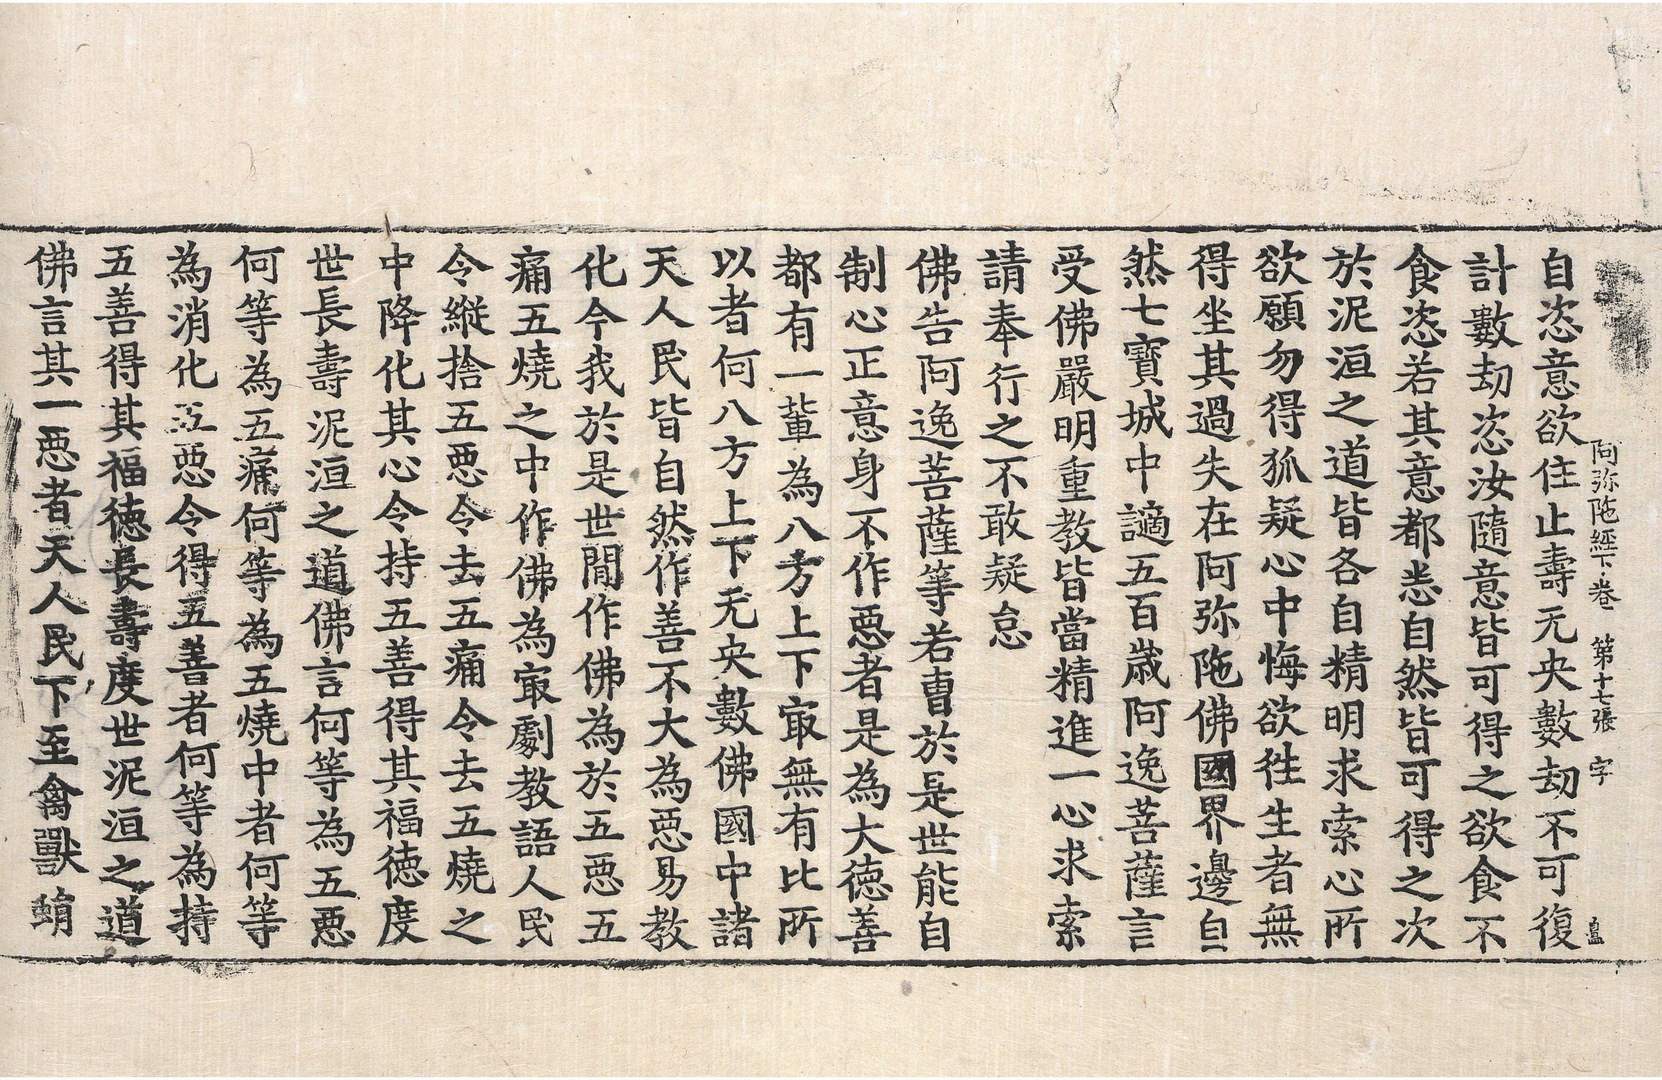 阿弥陁經下卷 第十七張 字
自恣意欲住止壽无央數劫不可復
計數劫恣汝隨意皆可得之欲食不
食恣若其意都悉自然皆可得之次
於泥洹之道皆各自精明求索心所
欲願勿得狐疑心中悔欲徃生者無
得坐其過失在阿弥陁佛國界邊自
然七寶城中讁五百歲阿逸菩薩言
受佛嚴明重教皆當精進一心求索
請奉行之不敢疑怠
佛告阿逸菩薩等若曹於是世能自
制心正意身不作惡者是為大德善
都有一輩為八方上下冣無有比所
以者何八方上下无央數佛國中諸
天人民皆自然作善不大為惡易教
化今我於是世閒作佛為於五惡五
痛五燒之中作佛為冣劇教語人民
令縱捨五惡令去五痛令去五燒之
中降化其心令持五善得其福德度
世長壽泥洹之道佛言何等為五惡
何等為五痛何等為五燒中者何等
為消化五惡令得五善者何等為持
五善得其福德長壽度世泥洹之道
佛言其一惡者天人民下至禽獸蜎